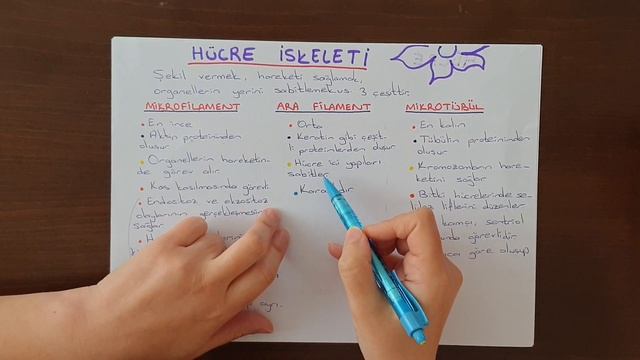 HÜCRE İSKELETİ
Şekil vermek, hareketi sağlamak,
organellerin yerini sabitlemek vs. 3 çeşittir.
MİKROFİLAMENT
• En ince
• Aktin proteininden
oluşur
• Organellerin hareketin-
de görev alır
• Kas kasılmasında görevli
• Endositoz ve ekzositoz
olaylarının gerçekleşmesini
sağlar
ARA FİLAMENT
• Orta
• Keratin gibi çeşit-
li proteinlerden oluşur
• Hücre içi yapıları
sabitler
MİKROTÜBÜL
• En kalın
• Tübülin proteininden
oluşur
• Kromozomların hare-
ketini sağlar
• Bitki hücrelerinde se-
liflerini düzenler
kamçı, sentriol
görevlidir
göre oluşup